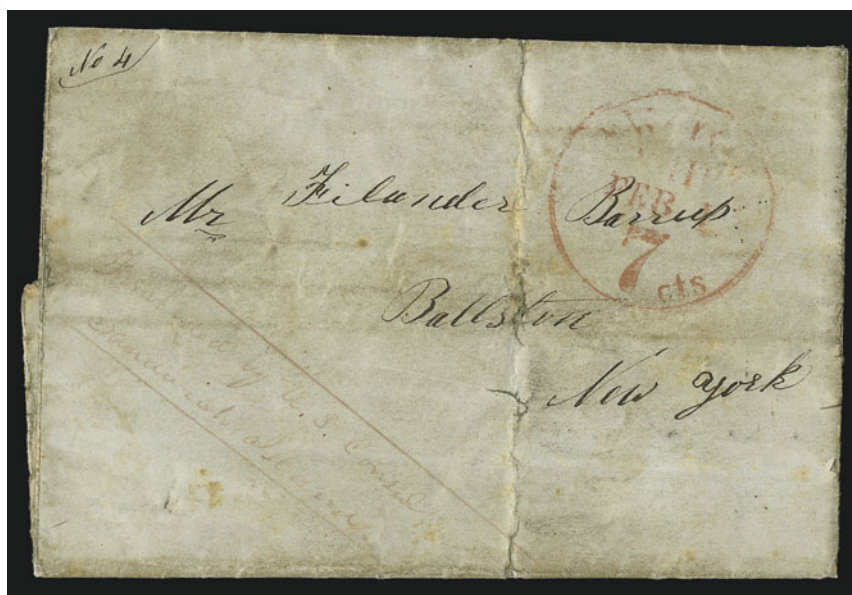 No 4
FEB
7
cts
Mr Filander Barrup
Ballston
New York
by U.S. Consul